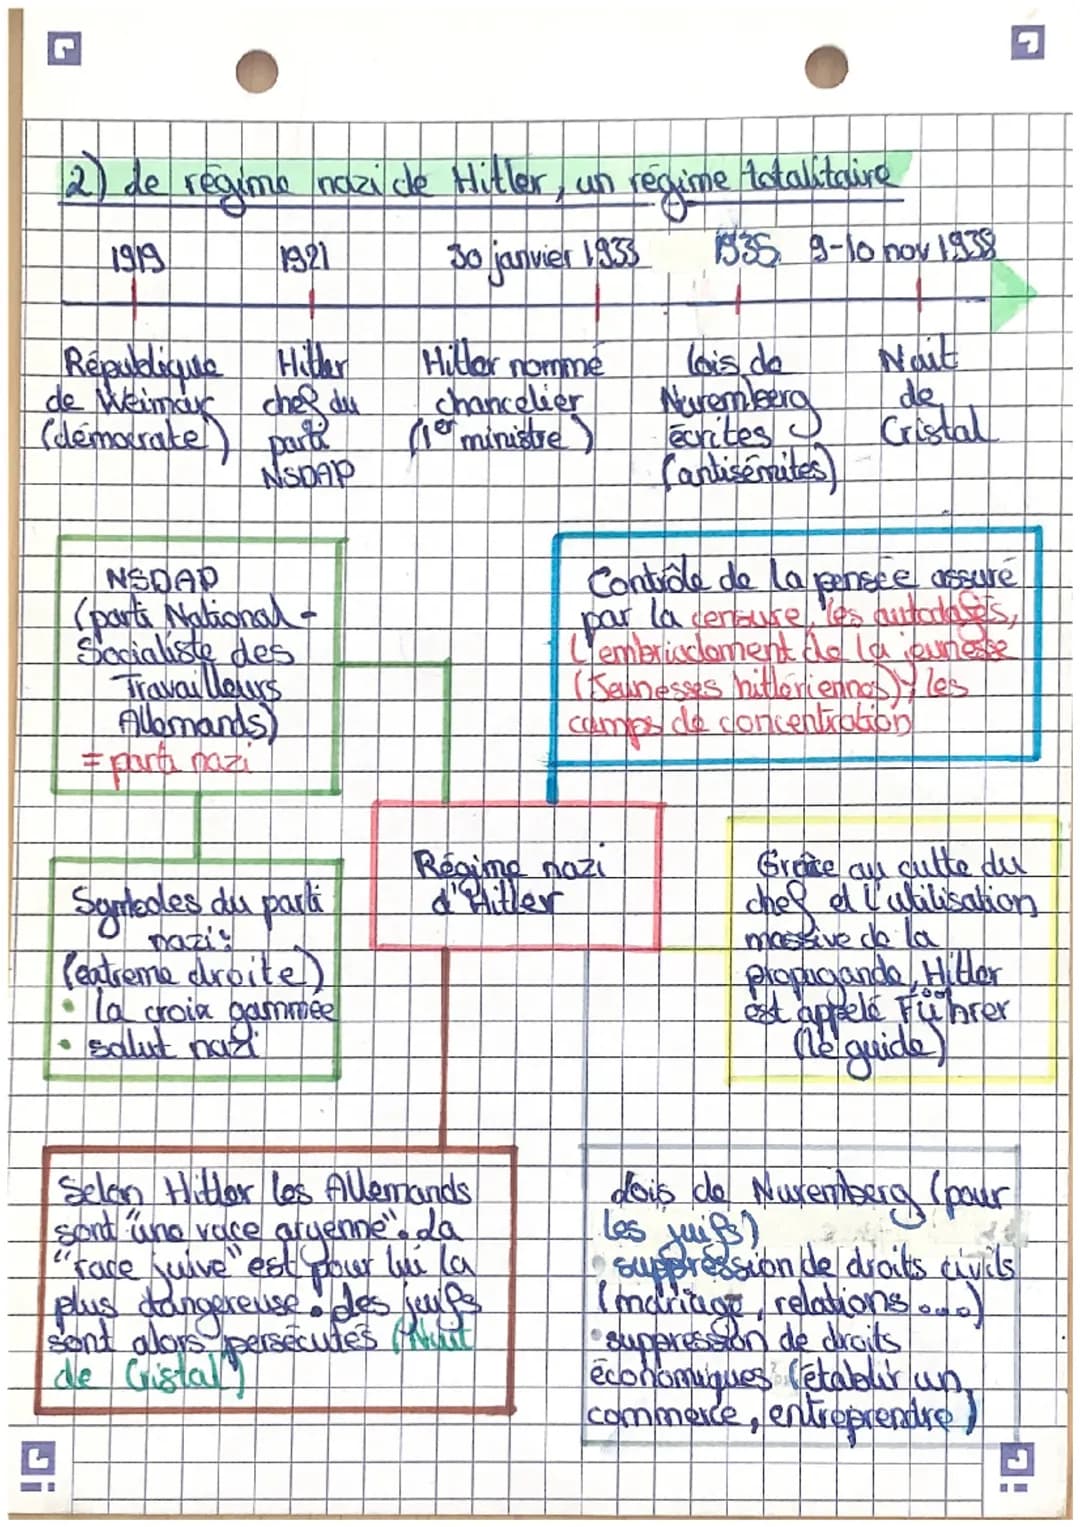 2) Le régime nazi de Hitler, un régime totalitaire
1919
1921
30 janvier 1933
1935
9-10 nov 1938
République
de Weimar
(démocrate)
Hitler
chef du
parti
NSDAP
Hitler nommé
chancelier
(1er ministre)
lois de
Nuremberg
écrites
(antisémites)
Nuit
de
Cristal
NSDAP
(parti National-
Socialiste des
Travailleurs
Allemands)
= parti nazi
Contrôle de la pensée assuré
par la censure, les autodafés,
l'embrigadement de la jeunesse
(Jeunesses hitlériennes), les
camps de concentration
Régime nazi
d'Hitler
Symboles du parti
nazi:
(extreme droite)
• la croix gammée
• salut nazi
Grâce au culte du
chef et l'utilisation
massive de la
propagande, Hitler
est appelé Führer
(le guide)
Selon Hitler les Allemands
sont "une race aryenne". La
"race juive" est pour lui la
plus dangereuse. Les juifs
sont alors persécutés (Nuit
de Cristal")
Lois de Nuremberg (pour
les juifs)
• suppression de droits civils
(mariage, relations ...)
• suppression de droits
économiques (établir un
commerce, entreprendre)